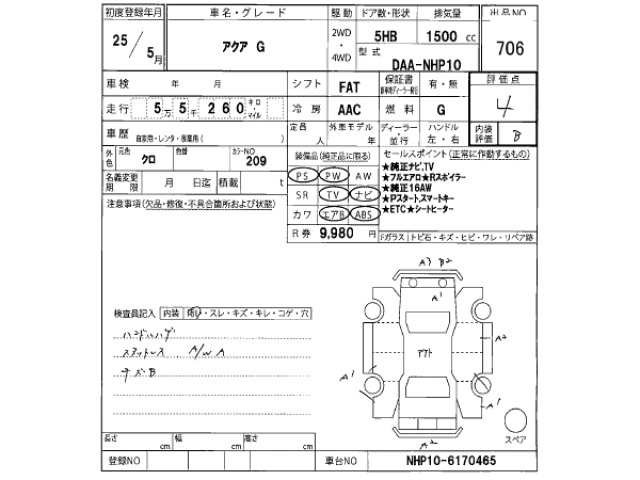 初度登録年月 車名・グレード 駆動 ドア数・形状 排気量 出品NO
25/5月 アクア G 2WD・4WD 5HB 1500 cc 706
型式 DAA-NHP10
車検 年 月 シフト FAT 保証書 有・無 評価点
走行 5 5 2 6 0 キロ・マイル 冷房 AAC 燃料 G 4
車歴 自家用・レンタ・事業用( ) 定員 人 外車モデル 年 ディーラー・並行 ハンドル 左・右 内装評価 B
外色 元色 クロ 色替 カラーNO 209 装備品(純正品に限る) セールスポイント(正常に作動するもの)
名義変更期限 月 日迄 積載 t PS PW AW ★純正ナビ,TV
★フルエアロ★Rスポイラー
注意事項(欠品・修復・不具合箇所および状態) SR TV ナビ ★純正16AW
★Pスタート,スマートキー
カワ エアB ABS ★ETC★シートヒーター
R券 9,980 円 Fガラス トビ石・キズ・ヒビ・ワレ・リペア跡
A3 B2
A1
検査員記入 内装 ・スレ・キズ・キレ・コゲ・穴
ハンドルハゲ A2
スタットレス A/W A
キズB
A1 A1
A2 スペア
長さ cm 幅 cm 高さ cm
登録NO 車台NO NHP10-6170465